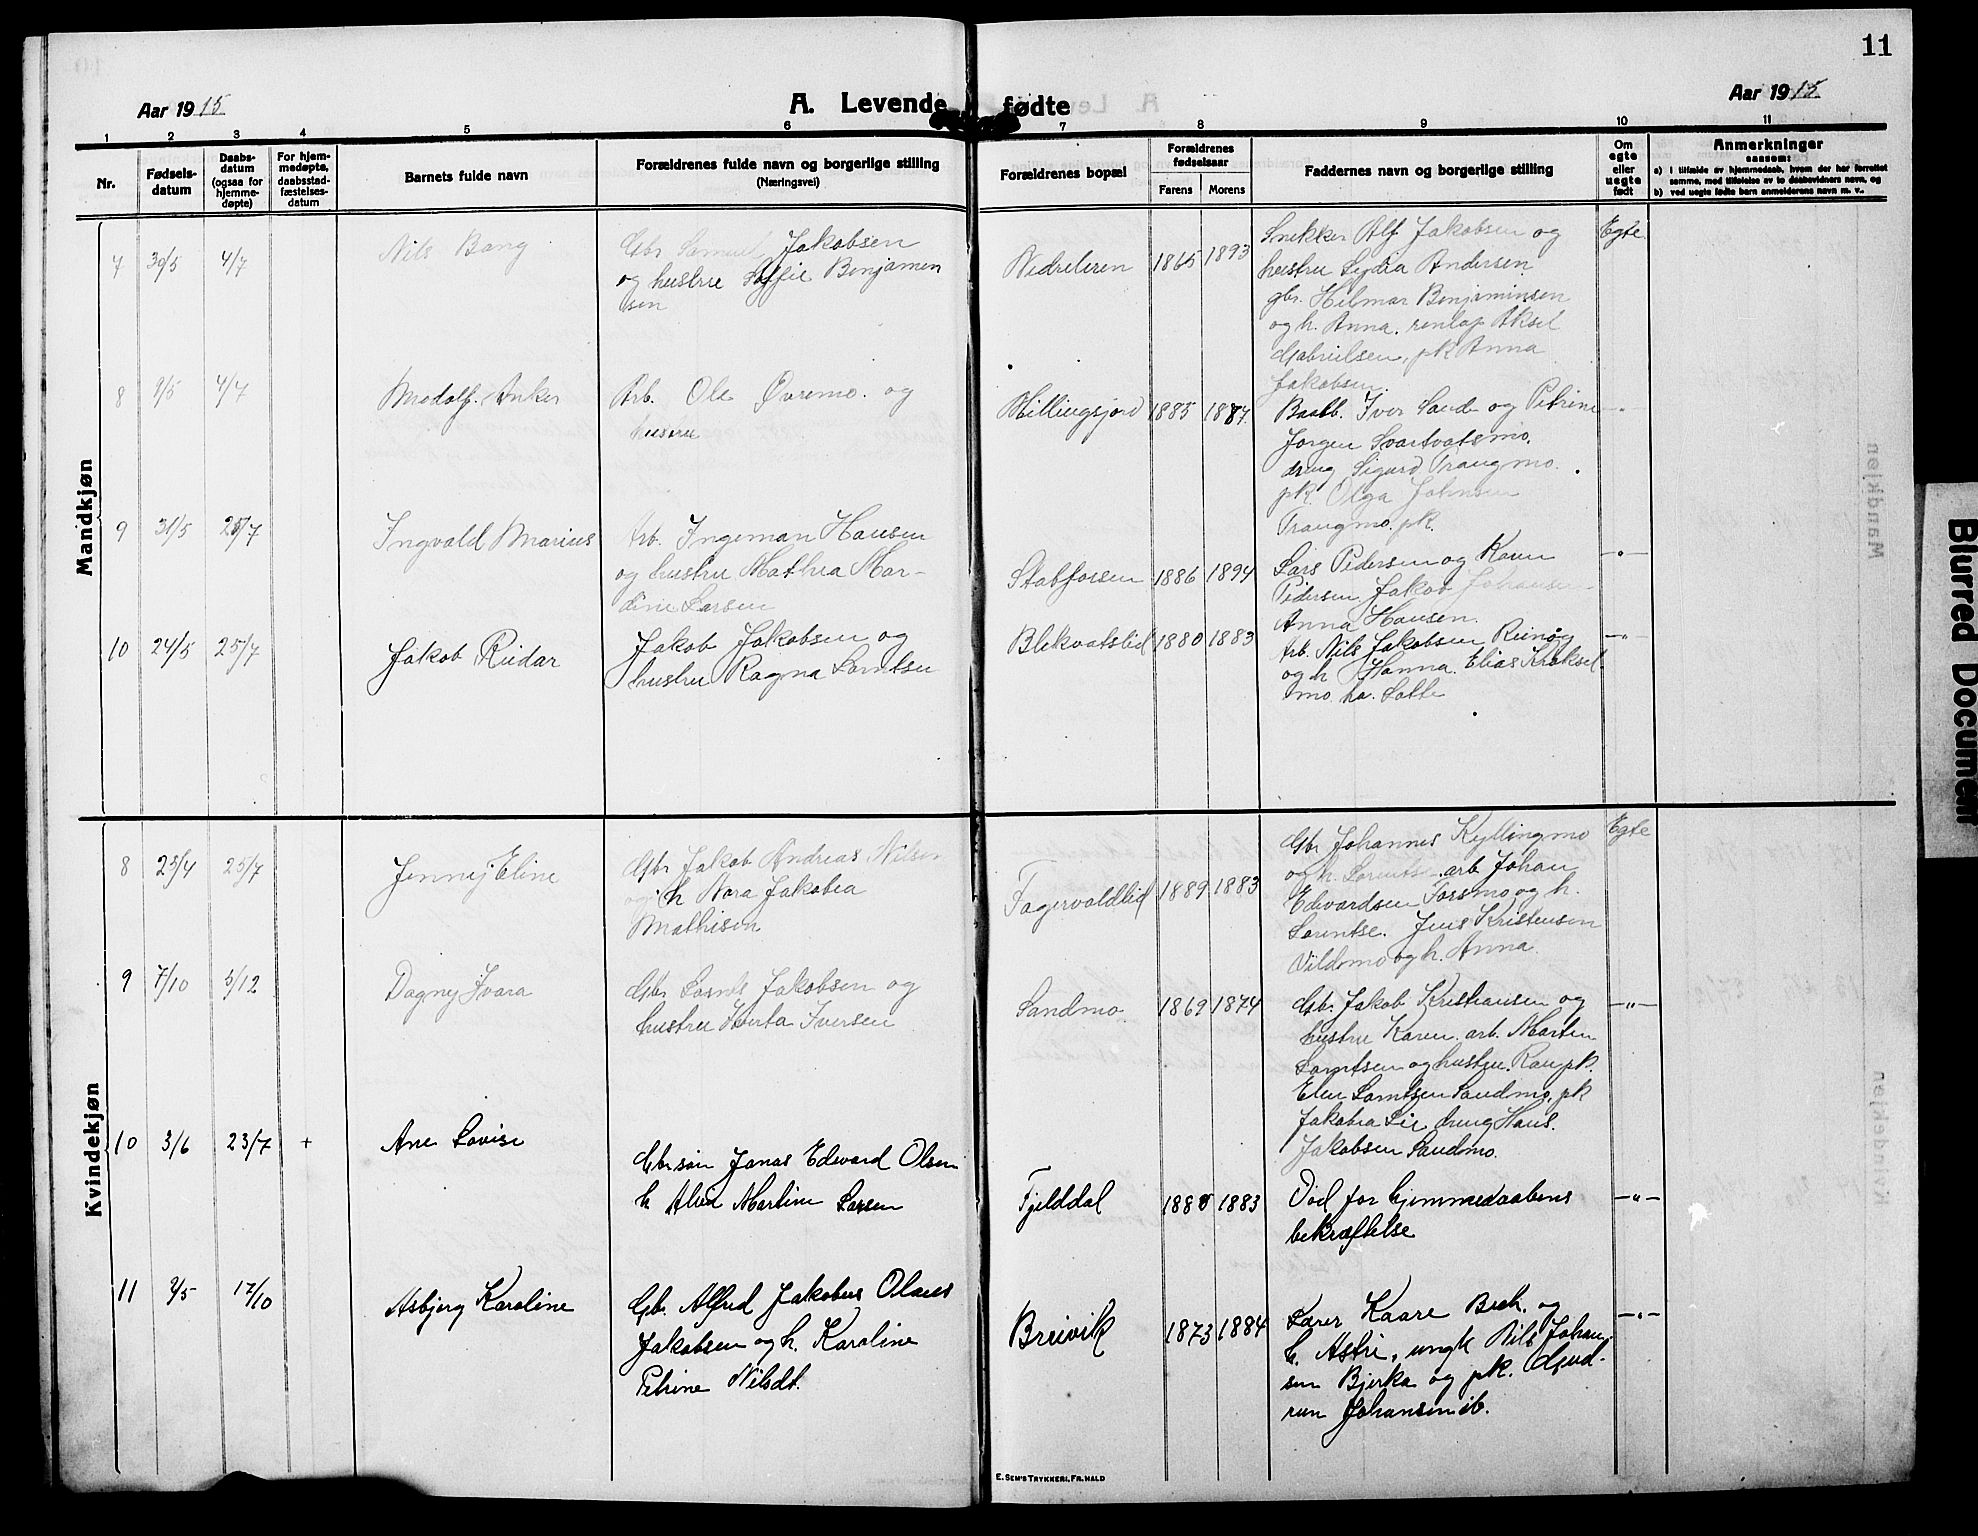 11
Aar 1915
A. Levende fødte
Aar 1915
1 2 3 4 5 6 7 8 9 10 11
Nr.
Fødsels-
datum
Daabs-
datum
(ogsaa for
hjemme-
døpte)
For hjem-
medøpte,
daabsstad-
fæstelses-
datum
Barnets fulde navn
Forældrenes fulde navn og borgerlige stilling
(Næringsvei)
Forældrenes bopæl
Forældrenes
fødselsaar
Farens Morens
Faddernes navn og borgerlige stilling
Om
egte
eller
uegte
født
Anmerkninger
saasom:
a) i tilfælde av hjemmedaab, hvem der har forrettet
samme, med tilføielse av to daabsvidners navn, og
b) ved uegte fødte barn anmelderens navn m. v.
Mandkjøn
7 30/5 4/7
Nils Bang
Gbr Samuel Jakobsen
og hustru Soffie Benjamen
sen
Nedreleren 1865 1893
Snekker Alf Jakobsen og
hustru Lydia Andersen
gbr. Hilmar Benjaminsen
og h. Anna. Aksel
Gabrielsen, pk Anna
Jakobsen.
Egte
8 9/5 4/7
Modolf Anker
Arb. Ole Øvremo og
hustru
Hillingsjord 1885 1887
Iver Sande og Petrine
Jørgen Svartvatsmo.
dreng Sigurd Trangmo.
pk. Olga Johnsen
Trangmo. pk.
-"-
9 31/5 25/7
Ingvald Marius
Arb. Ingeman Hansen
og hustru Mathea Mar-
dine Larsen
Stabforsen 1886 1894
Lars Pedersen og Karen
Pedersen. Jakob Johansen
Anna Hansen.
-"-
10 24/5 25/7
Jakob Reidar
Jakob Jakobsen og
hustru Ragna Lorntsen
Blekvatslid 1880 1883
Arb. Nils Jakobsen
og h Hanna. Elias Kroksel-
mo
-"-
Kvindekjøn
8 25/4 25/7
Jenny Eline
Gbr Jakob Andreas Nilsen
og h Nora Jakobea
Mathisen
Fagervoldlid 1889 1883
Gbr Johannes Kyllingmo
og h. Lorentse. arb Johan
Edvardsen Forsmo og h.
Lorentse. Jens Kristensen
Vildmo og h. Anna.
Egte
9 7/10 5/12
Dagny Ivara
Gbr Lornts Jakobsen og
hustru Iverta Iversen
Sandmo. 1869 1874
Gbr Jakob Kristiansen og
hustru Karen. arb. Morten
Lorntsen og hustru. pk.
Elen Lorntsen Sandmo, pk
Jakobea Lie dreng Hans.
Jakobsen Sandmo.
-"-
10 3/6 23/7 +
Ane Lovise
Gbrsøn Jonas Edvard Olsen
h Martine Larsen
Fjelddal 1883
Død før hjemmedaabens
bekræftelse
-"-
11 9/5 17/10
Asbjørg Karoline
Gb. Alfred Jakobus Olaus
Jakobsen og h. Karoline
Petrine Nilsdt.
Breivik 1873 1884
Lærer Kaare Bech. og
h. Astri, ungk Nils Johan-
sen Bjerka og pk. Gjud-
run Johansen ib.
-"-
E. Sem's Trykkeri, Fr.hald
Blurred Document